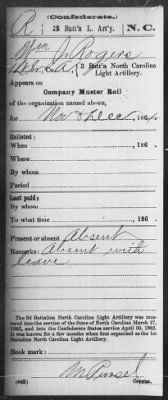 (Confederate.)
R 3 Batt'n L. Art'y. N.C.
Wm J. Rogers
3 Batt'n North Carolina
Light Artillery.
Appears on
Company Muster Roll
of the organization named above,
for Nov & Dec, 186
Enlisted:
When , 186 .
Where
By whom
Period
Last paid:
By whom
To what time , 186 .
Present or absent Absent
Remarks: Absent with
leave
The 3d Battalion North Carolina Light Artillery was mustered into the service of the State of North Carolina March 17, 1862, and into the Confederate States service April 30, 1862. It was known for a few months when first organized as the 1st Battalion North Carolina Light Artillery.
Book mark:
(642) Copyist.